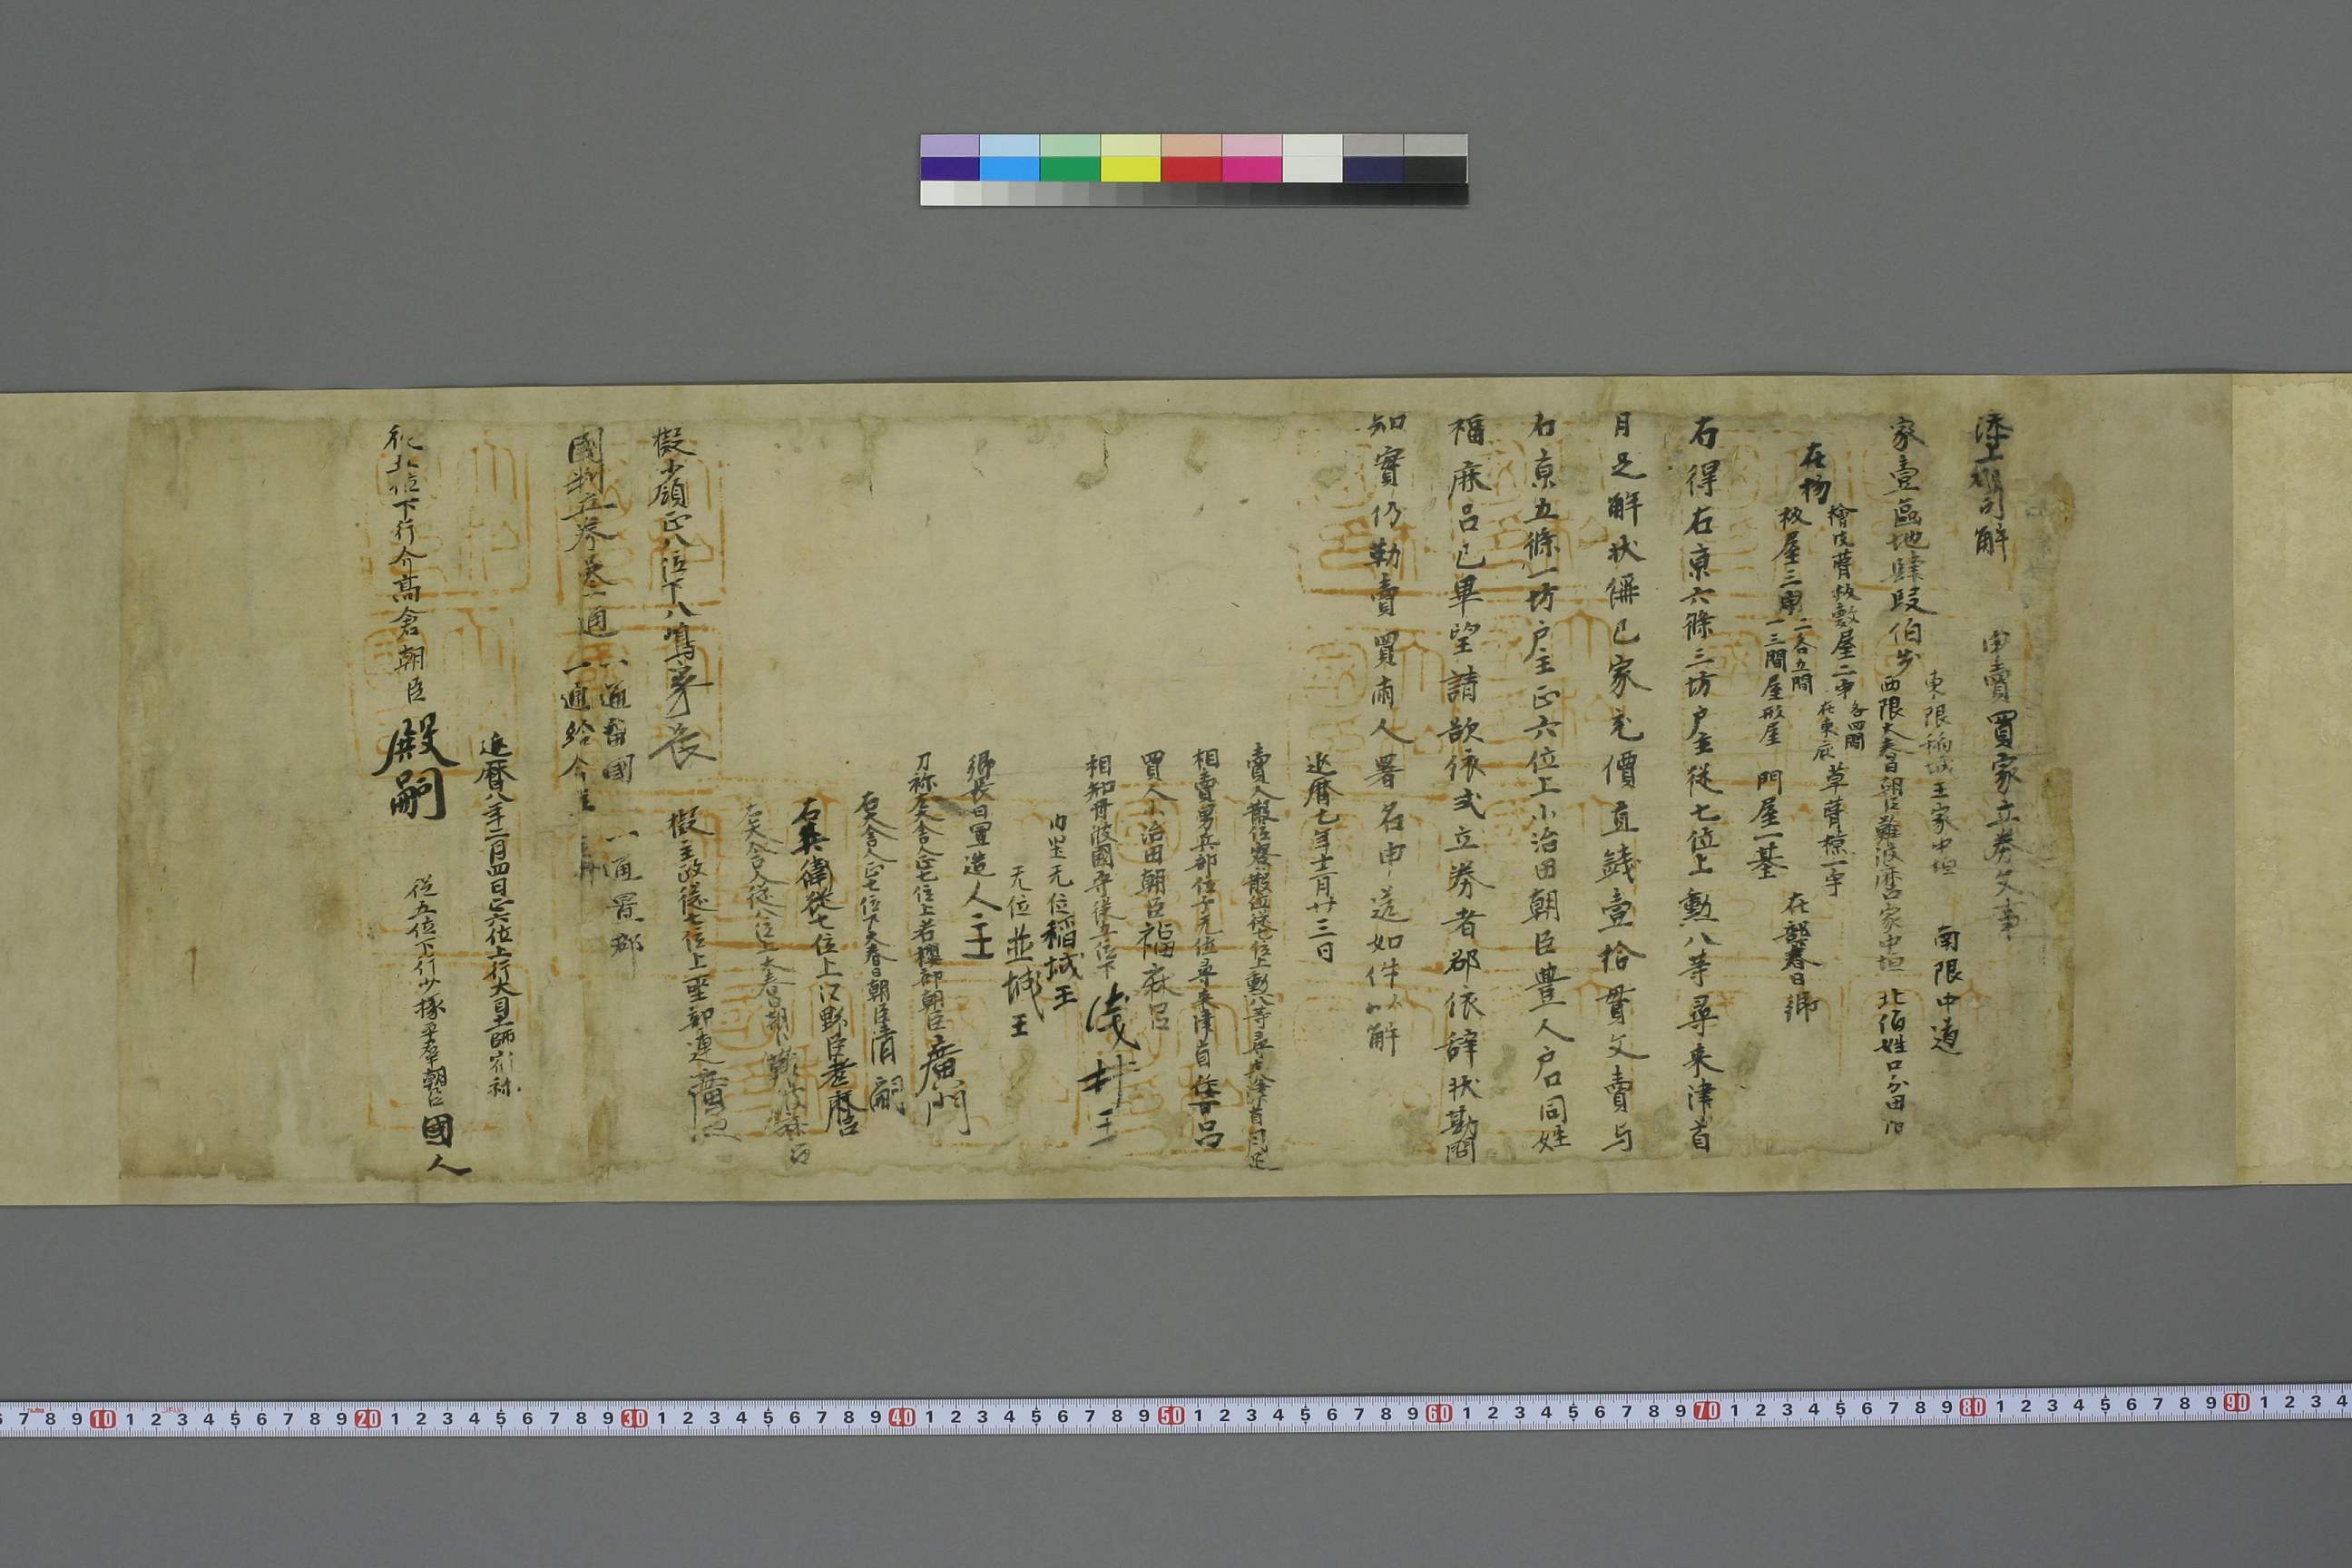 添上郡司解 申賣買家立券文事
家壹區地肆段伯歩
東限稲城王家中垣 南限中道
西限大春日朝臣難波麻呂家中垣 北佰姓口分田
在物
檜皮葺板敷屋二宇 各四間 在東庇 草葺椋一宇
板屋三宇 二各五間 一三間屋形屋 門屋一基 在部春日郷
右得右京六條三坊戸主従七位上勲八等尋来津首
月足解状偁己家充價直錢壹拾貫文賣与
右京五條一坊戸主正六位上小治田朝臣豊人戸口同姓
福麻呂已畢望請欲依式立券者郡依辞状勘問
知實仍勒賣買兩人署名申送如件以解
延暦七年十一月廿三日
賣人散位寮散位従七位上勲八等尋来津首月足
相賣男兵部位子无位尋来津首
買人小治田朝臣福麻呂
相知丹波國守従五位下浅井王
内竪无位稲城王
无位並城王
郷長日置造人主
刀祢左大舎人正七位上若櫻部朝臣廣門
右大舎人正七位下大春日朝臣清嗣
右兵衛従七位上江野臣老麻呂
右大舎人従八位上大春日朝臣難波麻呂
擬少領正八位下八嶋茅長 擬主政従七位上 連廣
國判立券参通 一通留國 一通置郡
一通給今主
延暦八年二月四日正六位上行大目土師
従五位下行介高倉朝臣殿嗣 従五位下行少掾平群朝臣國人